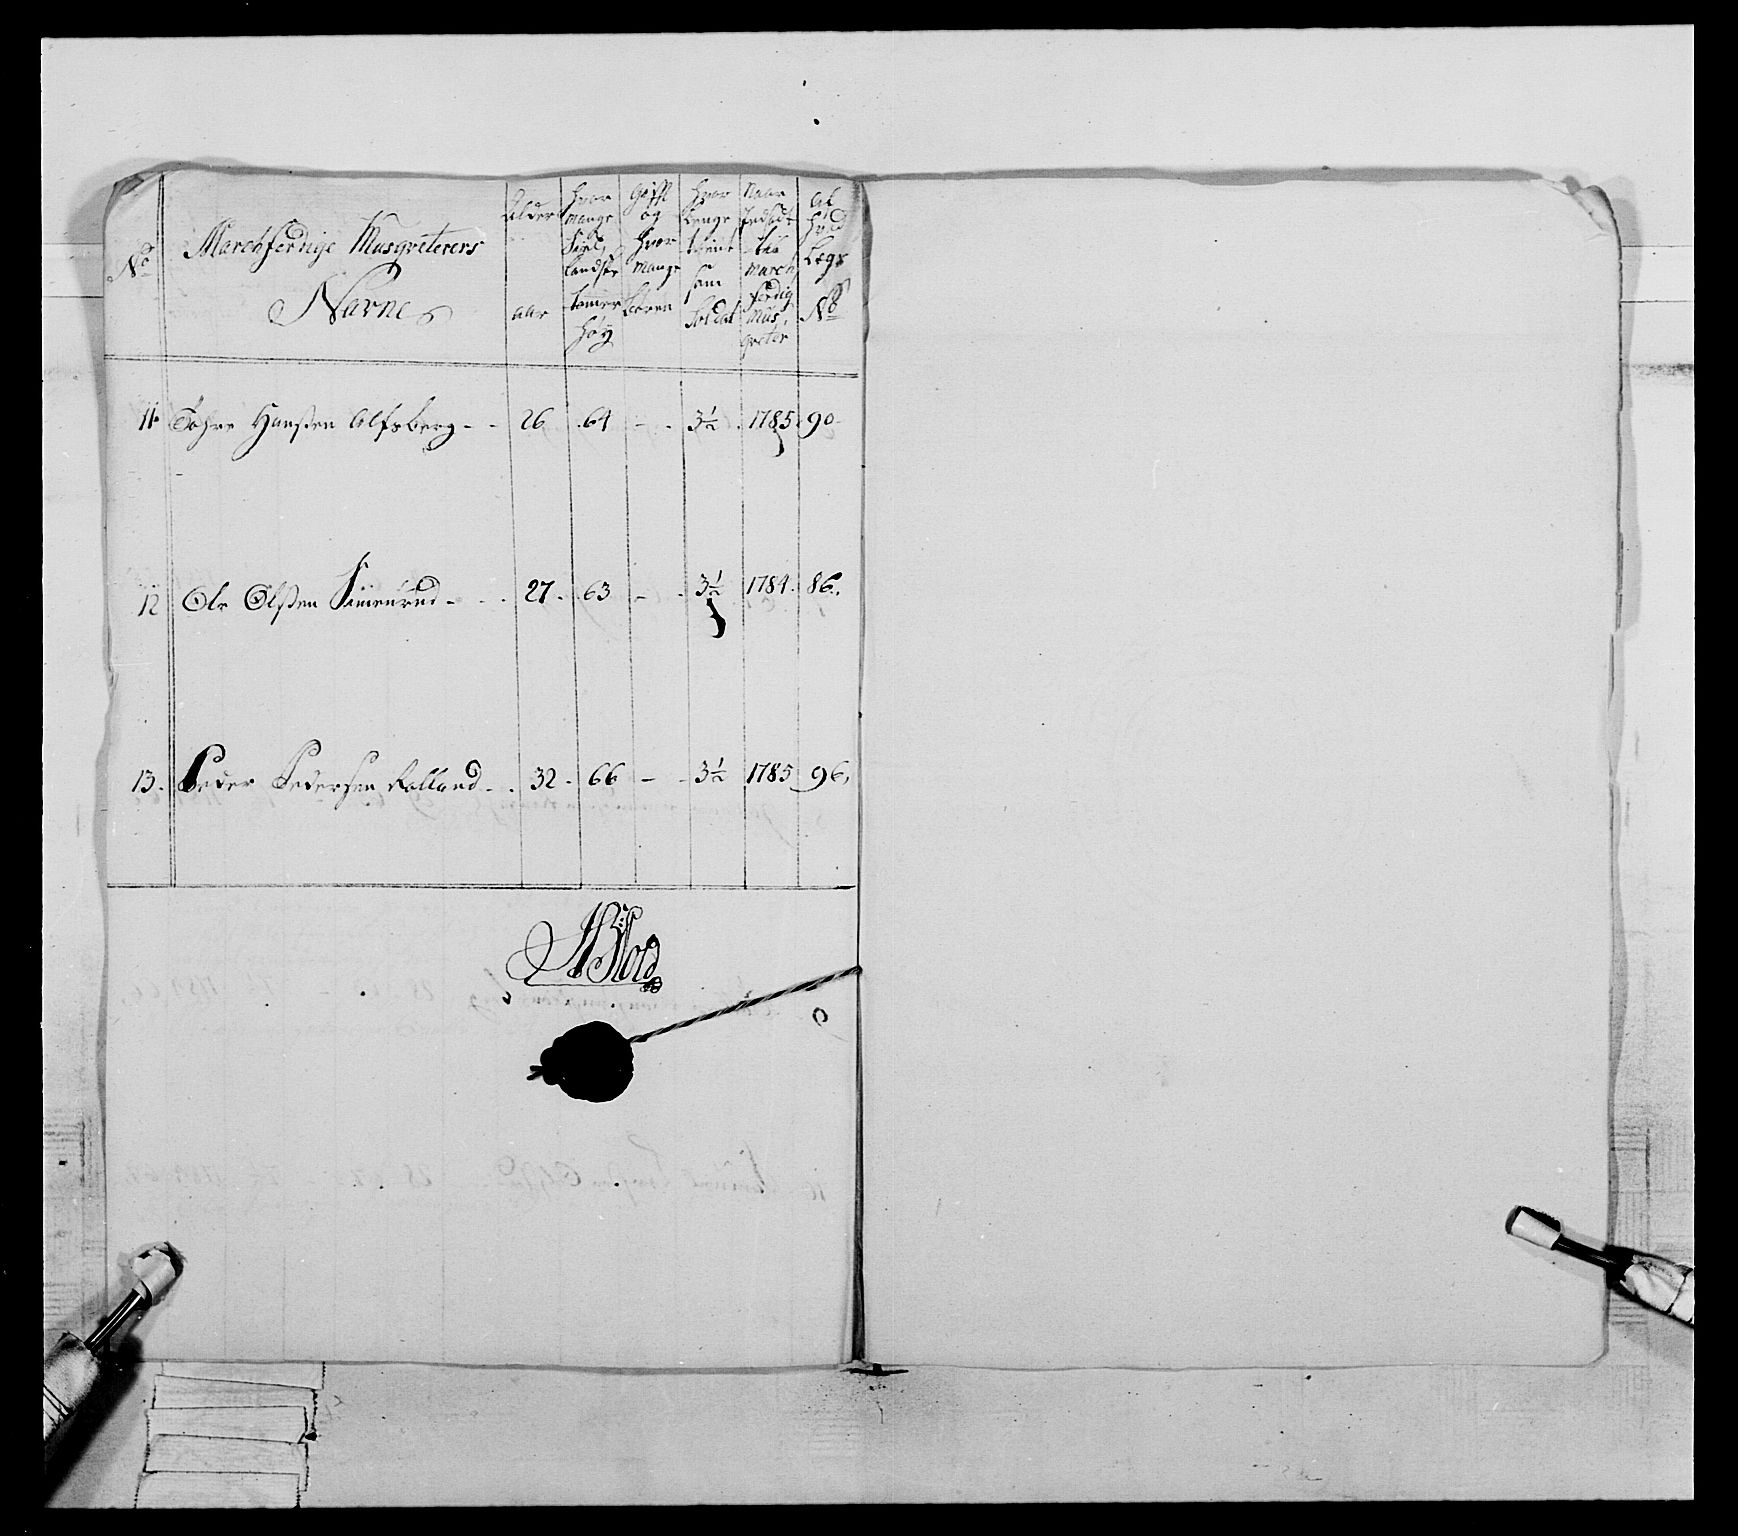 No
Marchferdige Musqveterers
Navne
Alder
aar
Hvor
mange
Siel,
landske
tomer
høy
Gifft
og
hvor
mange
børen
Hvor
lenge
tient
som
Soldat
Naar
Indsadt
till
March
ferdig
Mus,
qveter
af
hvad
Lægs
No
11. Tohre Hanssen Alfsberg - - 26 . 64 - . 3½ . 1785. 90
12 Ole Olssen Simenrud - - . 27 . . 63 - . 3½ 1784. 86.
13. Peder Pedersen Rolland - . 32 . 66 - - 3½ 1785 96.